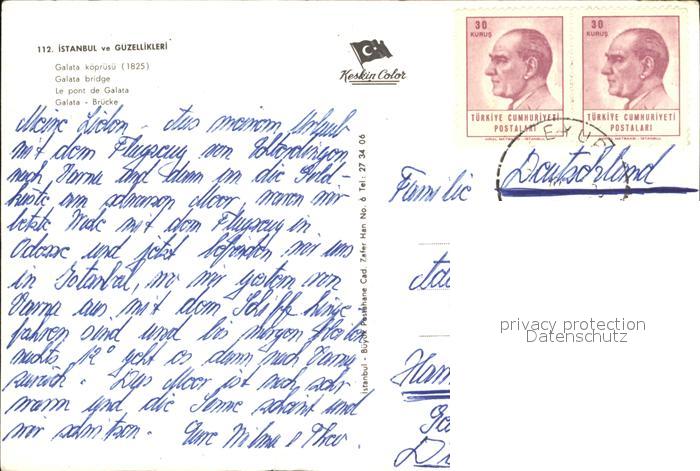 112. İSTANBUL ve GUZELLİKLERİ
Galata köprüsü (1825)
Galata bridge
Le pont de Galata
Galata - Brücke
Keskin Color
30
KURUŞ
TÜRKİYE CUMHURİYETİ
POSTALARI
30
KURUŞ
TÜRKİYE CUMHURİYETİ
POSTALARI
EYÜP
Meine Lieben. Aus meinem Urlaub
mit dem Flugzeug von
nach Varna und dann an die Gold-
küste am schwarzen Meer, waren wir
letzte Woche mit dem Flugzeug in
Odessa und jetzt befinden wir uns
in Istanbul, wo wir gestern von
Varna aus mit dem Schiff hinge
fahren sind und bis morgen
nachts 12° geht es dann nach Varna
zurück. Das Meer ist noch sehr
warm und die Sonne scheint und
wir schwitzen. Eure Wilma u Theo.
İstanbul - Büyük Postahane Cad. Zafer Han No. 6 Tel: 27 34 06
Deutschland
Familie
Ham
privacy protection
Datenschutz